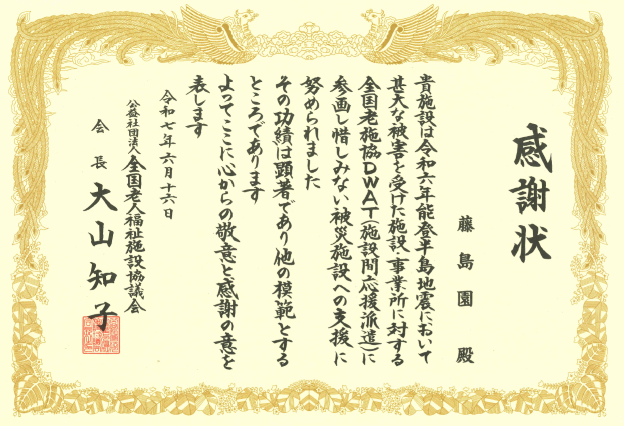 感謝状
藤島園 殿
貴施設は令和六年能登半島地震において
甚大な被害を受けた施設・事業所に対する
全国老施協DWAT(施設間応援派遣)に
参画し惜しみない被災施設への支援に
努められました
その功績は顕著であり他の模範とする
ところであります
よってここに心からの敬意と感謝の意を
表します
令和七年六月十六日
公益社団法人 全国老人福祉施設協議会
会長 大山知子